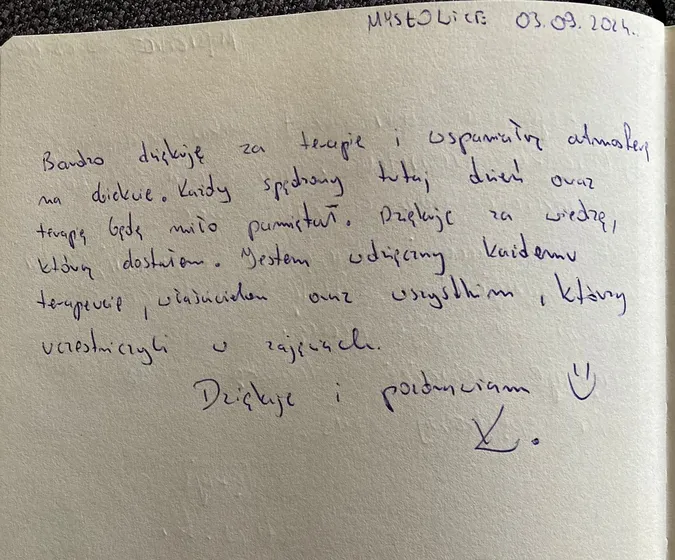 MYSŁOWICE 03.09.2024.
Bardzo dziękuję za terapię i wspaniałą atmosferę
na obiekcie. Każdy spędzony tutaj dzień oraz
terapę będę miło pamiętał. Dziękuję za wiedzę,
którą dostałem. Jestem wdzięczny każdemu
terapeucie, właścicielom oraz wszystkim, którzy
uczestniczyli w zajęciach.
Dziękuję i pozdrawiam
K.